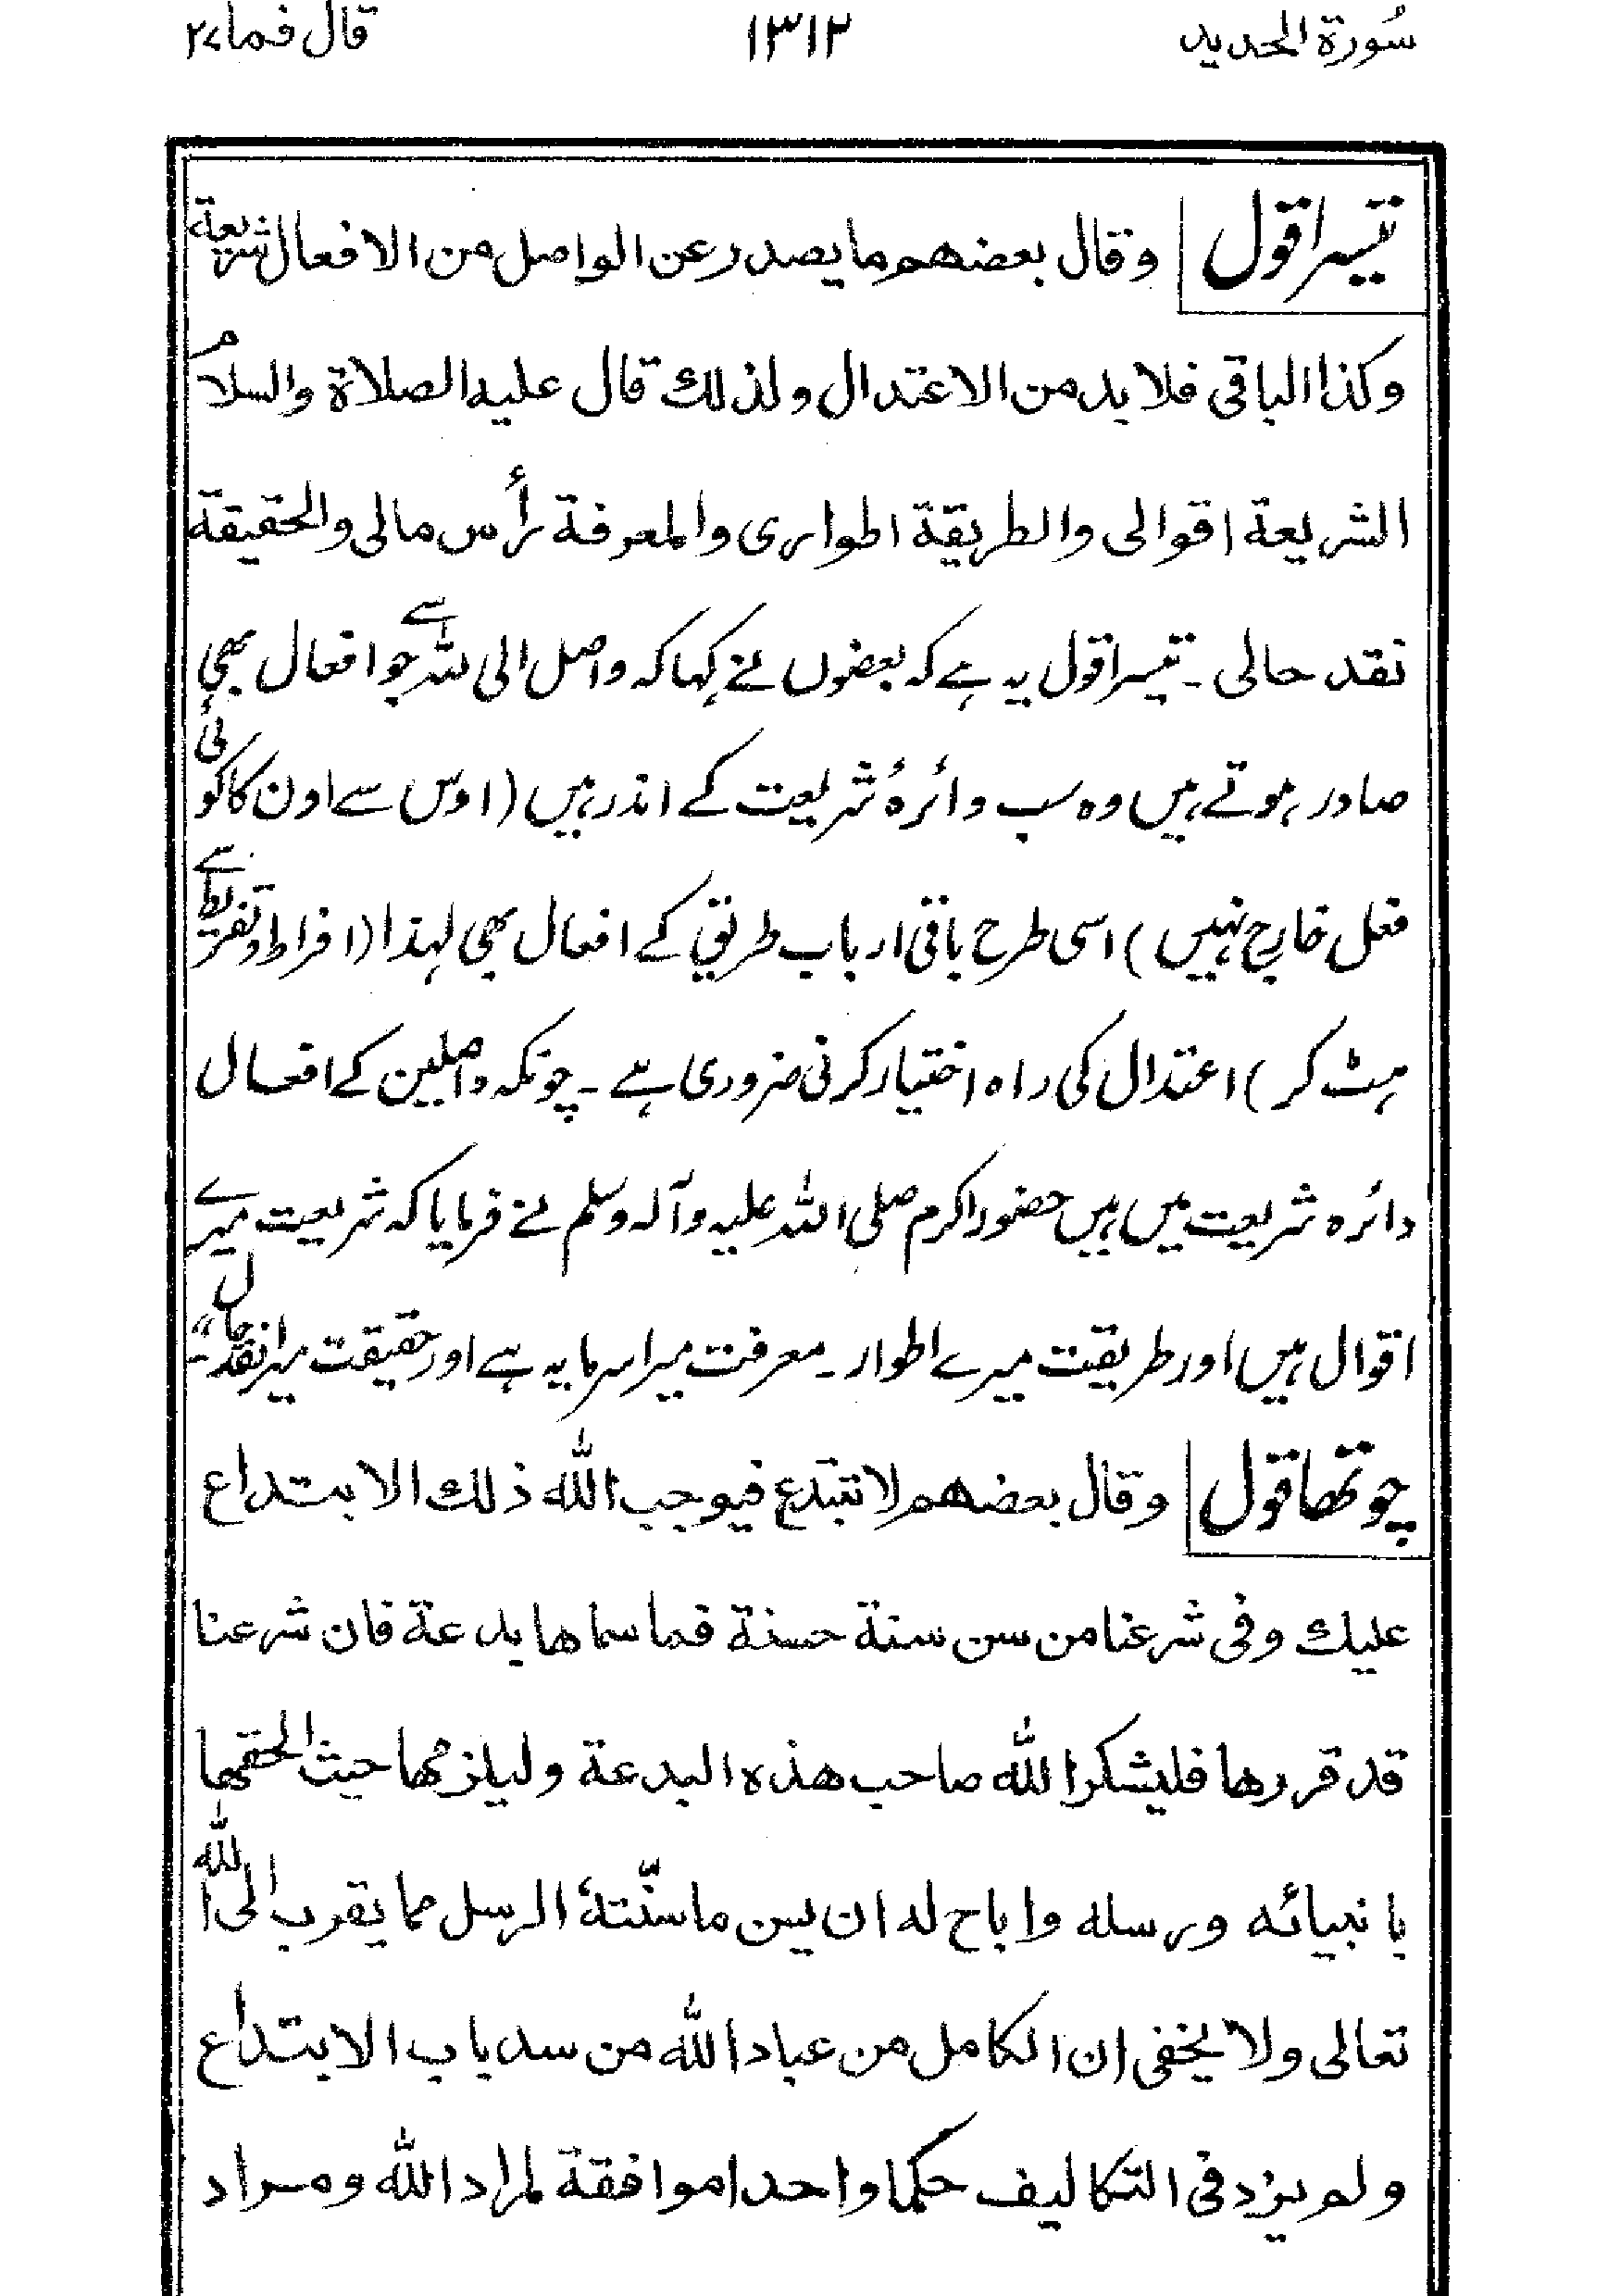 سُورة الحديد ۱۳۱۲ قال فما ۲۷
تیسرا قول وقال بعضهم ما يصدر عن الواصل من الافعال شريعة
وكذا الباقى فلا بد من الاعتدال ولذلك قال عليه الصلاة والسلام
الشريعة اقوالى والطريقة اطوارى والمعرفة رأس مالى والحقيقة
نقد حالى ۔ تیسرا قول یہ ہے کہ بعضوں نے کہا کہ واصل الی اللہ سے جو افعال بھی
صادر ہوتے ہیں وہ سب دائرۂ شریعت کے اندر ہیں (اوس سے اون کا کوئی
فعل خارج نہیں) اسی طرح باقی ارباب طریق کے افعال بھی لہذا (افراط و تفریط سے
ہٹ کر) اعتدال کی راہ اختیار کرنی ضروری ہے ۔ چونکہ واصلین کے افعال
دائرہ شریعت میں ہیں حضور اکرم صلی اللہ علیہ وآلہ وسلم نے فرمایا کہ شریعت میرے
اقوال ہیں اور طریقت میرے اطوار ۔ معرفت میرا سرمایہ ہے اور حقیقت میرا نقد حال ‘‘۔
چوتھا قول وقال بعضهم لا تبتدع فيوجب الله ذلك الابتداع
عليك وفى شرعنا من سن سنة حسنة فما سماها بدعة فان شرعنا
قد قررها فليشكر الله صاحب هذه البدعة وليلزمها حيث الحقها
بانبيائه ورسله واباح له ان يسن ما سنّته الرسل مما يقرب الى الله
تعالى ولا يخفى ان الكامل من عباد الله من سد باب الابتداع
ولم يزد فى التكاليف حكما واحدا موافقة لمراد الله ومراد